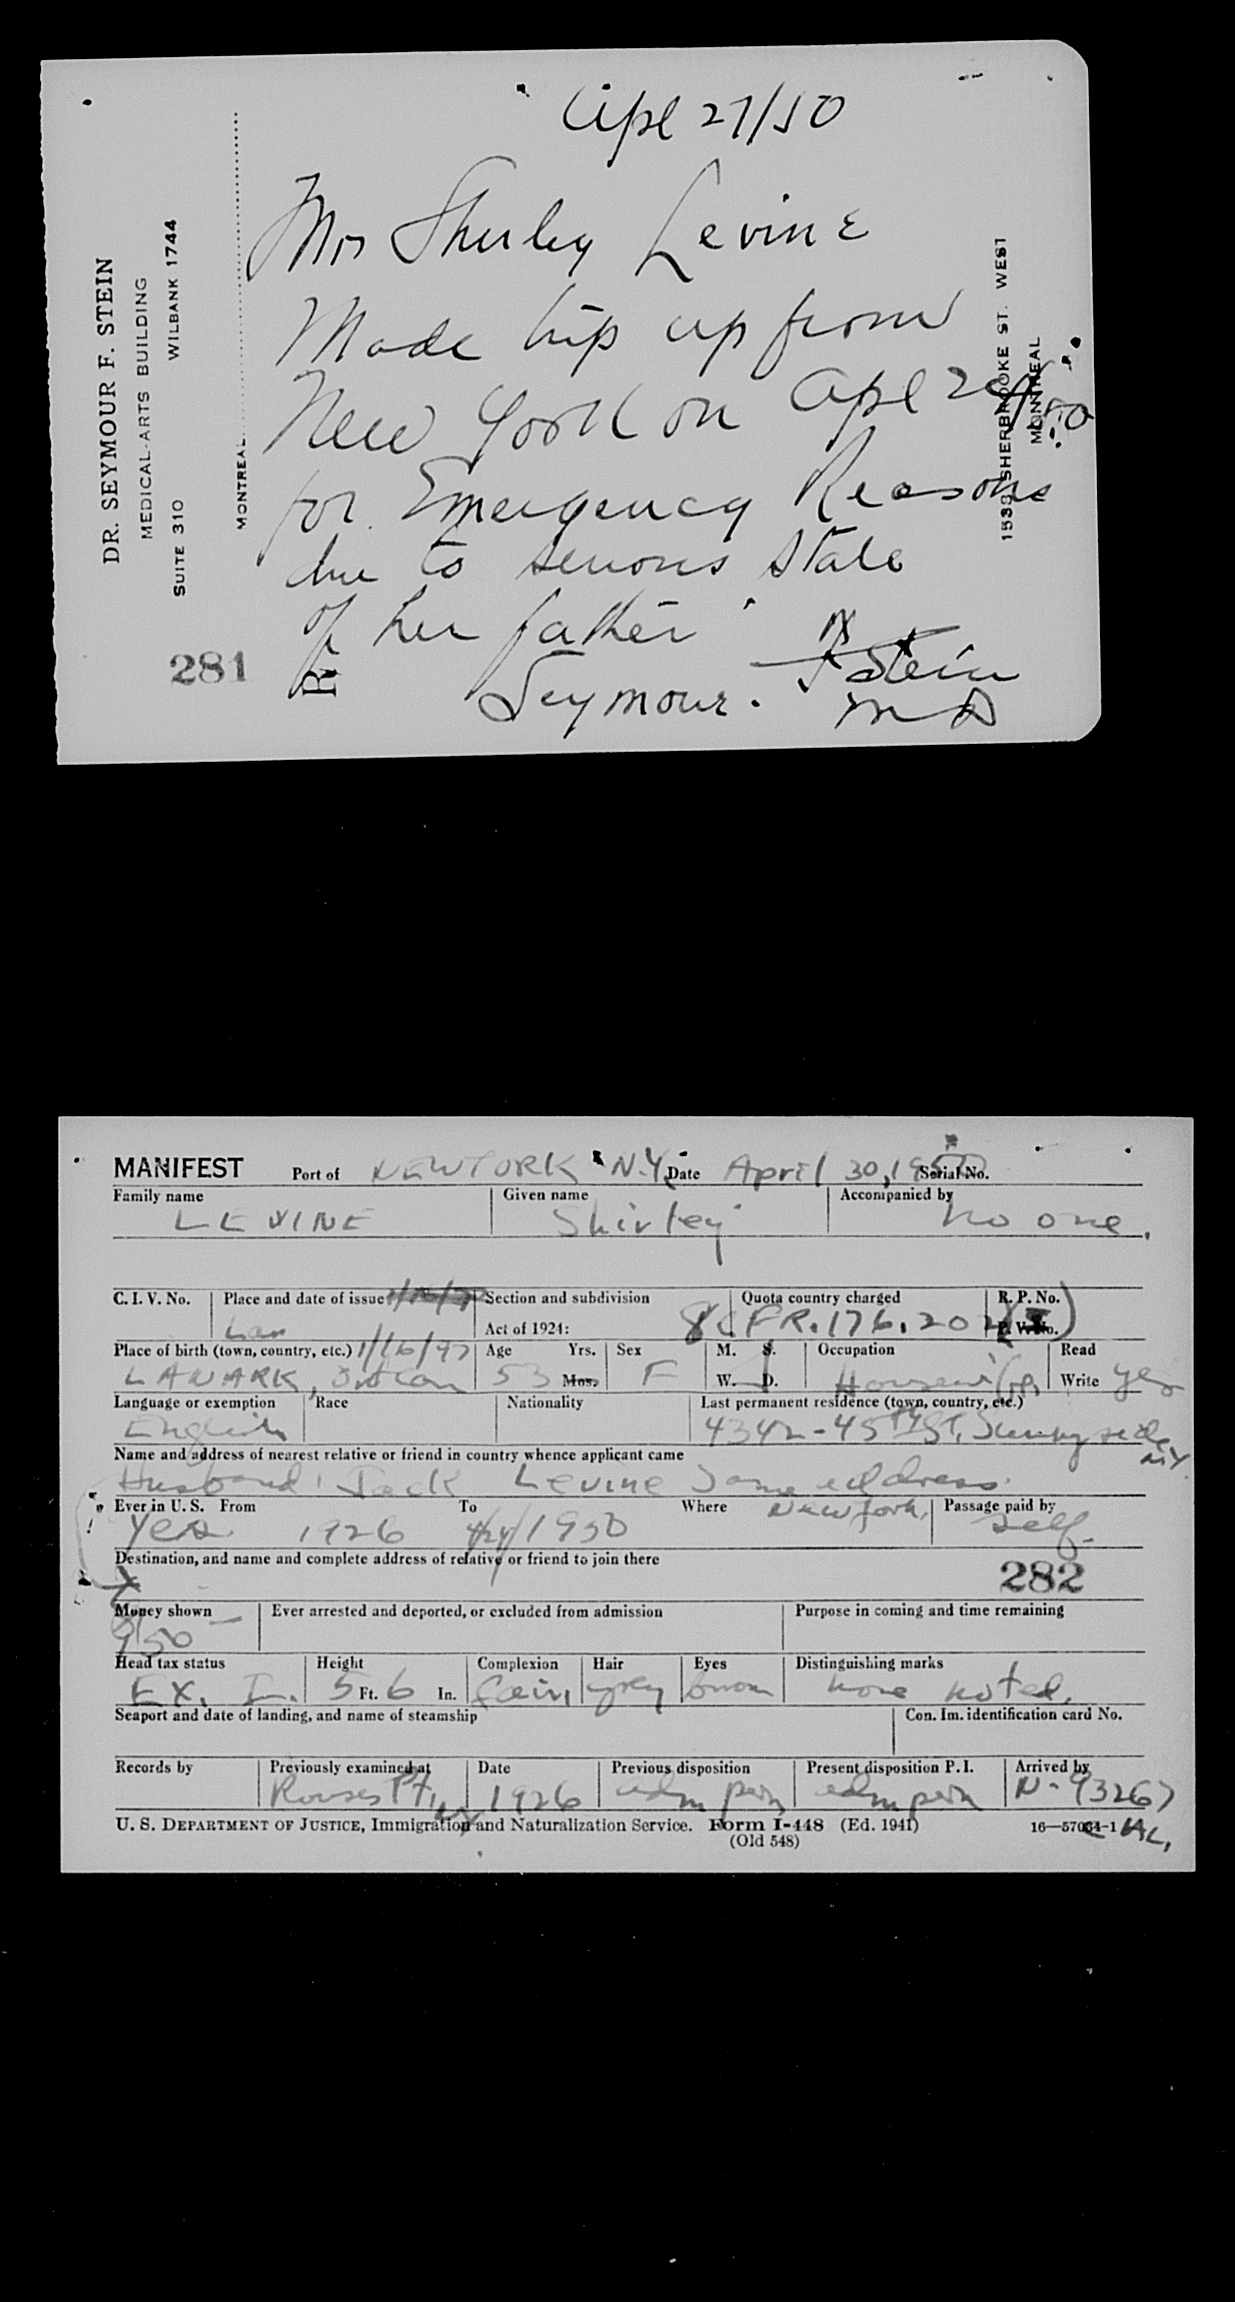 Apl 27/50
DR. SEYMOUR F. STEIN
MEDICAL-ARTS BUILDING
SUITE 310 WILBANK 1744
MONTREAL
1538 SHERBROOKE ST. WEST
MONTREAL
Mrs Shirley Levine
Made trip up from
New York on Apl 24/50
for Emergency Reasons
due to serious state
of her father
Seymour. F Stein
MD
281
Rx
MANIFEST Port of NEW YORK N.Y. Date April 30, 1950 Serial No.
Family name Given name Accompanied by
LEVINE Shirley no one.
C. I. V. No. Place and date of issue Section and subdivision Quota country charged R. P. No.
Act of 1924: 8 CFR. 176.202 P. W. No.
Place of birth (town, country, etc.) 1/16/97 Age Yrs. Sex M. S. Occupation Read
LANARK, 53 Mos. F W. D. Housewife Write yes
Language or exemption Race Nationality Last permanent residence (town, country, etc.)
English 4342-45th ST. Sunnyside N.Y.
Name and address of nearest relative or friend in country whence applicant came
Husband: Jack Levine Same address.
Ever in U. S. From To Where New York. Passage paid by
Yes 1926 4/24/1950 self.
Destination, and name and complete address of relative or friend to join there
282
Money shown Ever arrested and deported, or excluded from admission Purpose in coming and time remaining
Head tax status Height Complexion Hair Eyes Distinguishing marks
EX. 5 Ft. 6 In. fair grey brown none noted.
Seaport and date of landing, and name of steamship Con. Im. identification card No.
Records by Previously examined at Date Previous disposition Present disposition P. I. Arrived by
Rouses Pt. NY 1926 adm perm adm perm N-93267
U. S. DEPARTMENT OF JUSTICE, Immigration and Naturalization Service. Form I-448 (Ed. 1941) 16—57064-1
(Old 548)